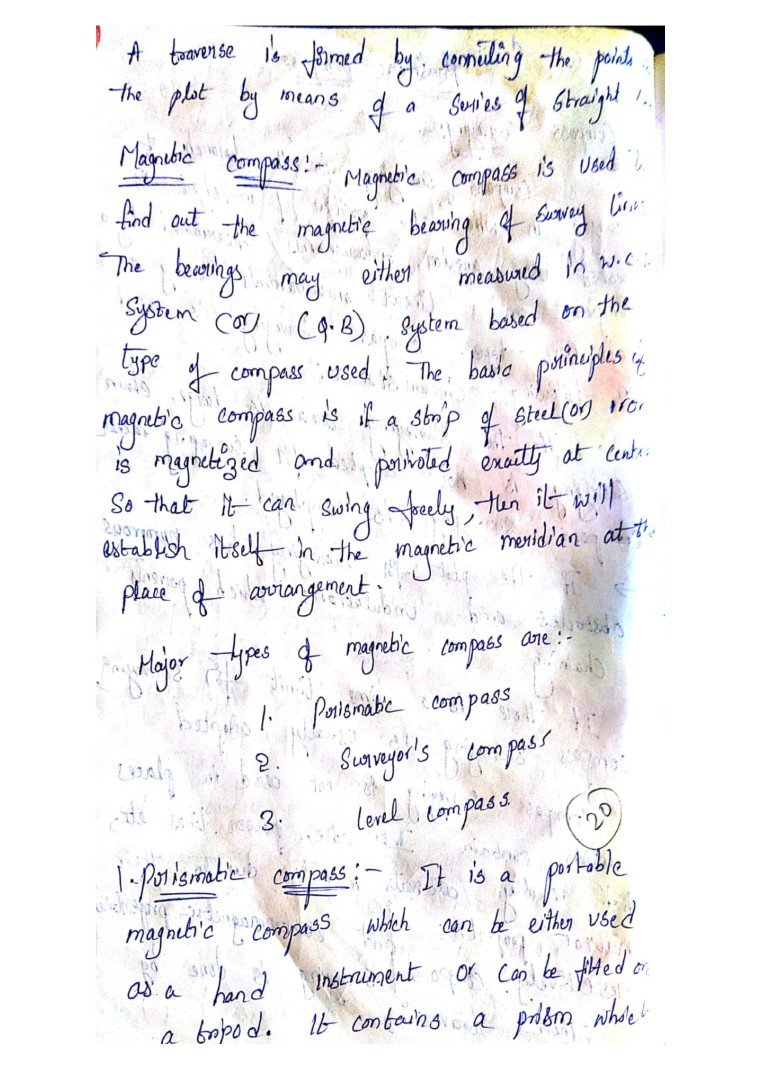 A traverse is formed by connecting the points
the plot by means of a Series of Straight
Magnetic compass:- Magnetic compass is used
find out the magnetic bearing of Survey
The bearings may either measured in W.C
System (or) (Q.B) System based on the
type of compass used. The basic principles of
magnetic compass is if a strip of Steel (or)
is magnetized and poivoted exactly at
So that it can swing freely, then it will
establish itself in the magnetic meridian at the
place of arrangement.
Major types of magnetic compass are:-
1. Prismatic compass
2. Surveyor's compass
3. Level compass.
20
1. Prismatic compass:- It is a portable
magnetic compass which can be either used
as a hand instrument or can be fitted on
a tripod. It contains a prism